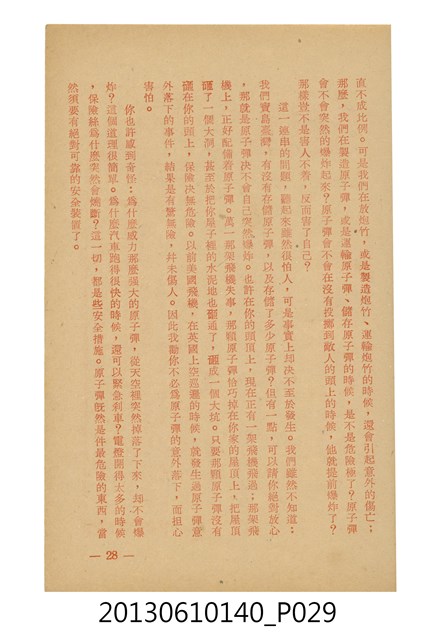 直不成比例。可是我們在放炮竹，或是製造炮竹、運輸炮竹的時候，還會引起意外的傷亡；
那麼，我們在製造原子彈，或是運輸原子彈、儲存原子彈的時候，是不是危險極了？原子彈
會不會突然的爆炸起來？原子彈會不會在沒有投擲到敵人的頭上的時候，他就提前爆炸了？
那樣豈不是害人不着，反而害了自己？
這一連串的問題，聽起來雖然很怕人，可是事實上却決不至於發生。我們雖然不知道：
我們寶島臺灣，有沒有存儲原子彈，以及存儲了多少原子彈？但有一點，可以請你絕對放心
，那就是原子彈決不會自己突然爆炸。也許在你的頭頂上，現在正有一架飛機飛過；那架飛
機上，正好配備着原子彈。萬一那架飛機失事，那顆原子彈恰巧掉在你家的屋頂上，把屋頂
砸了一個大洞，甚至於把你屋子裡的水泥地也砸通了，砸成一個大坑。只要那顆原子彈沒有
砸在你的頭上，保險決無危險。以前美國飛機，在英國上空巡邏的時候，就發生過原子彈意
外落下的事件，結果是有驚無險，幷未傷人。因此我勸你不必爲原子彈的意外落下，而担心
害怕。
你也許感到奇怪：爲什麼威力那麼强大的原子彈，從天空裡突然掉落了下來，却不會爆
炸？這個道理很簡單。爲什麼汽車跑得很快的時候，還可以緊急刹車？電燈開得太多的時候
，保險絲爲什麼突然會燒斷？這一切，都是些安全措施。原子彈旣然是件最危險的東西，當
然須要有絕對可靠的安全裝置了。
— 28 —
20130610140_P029